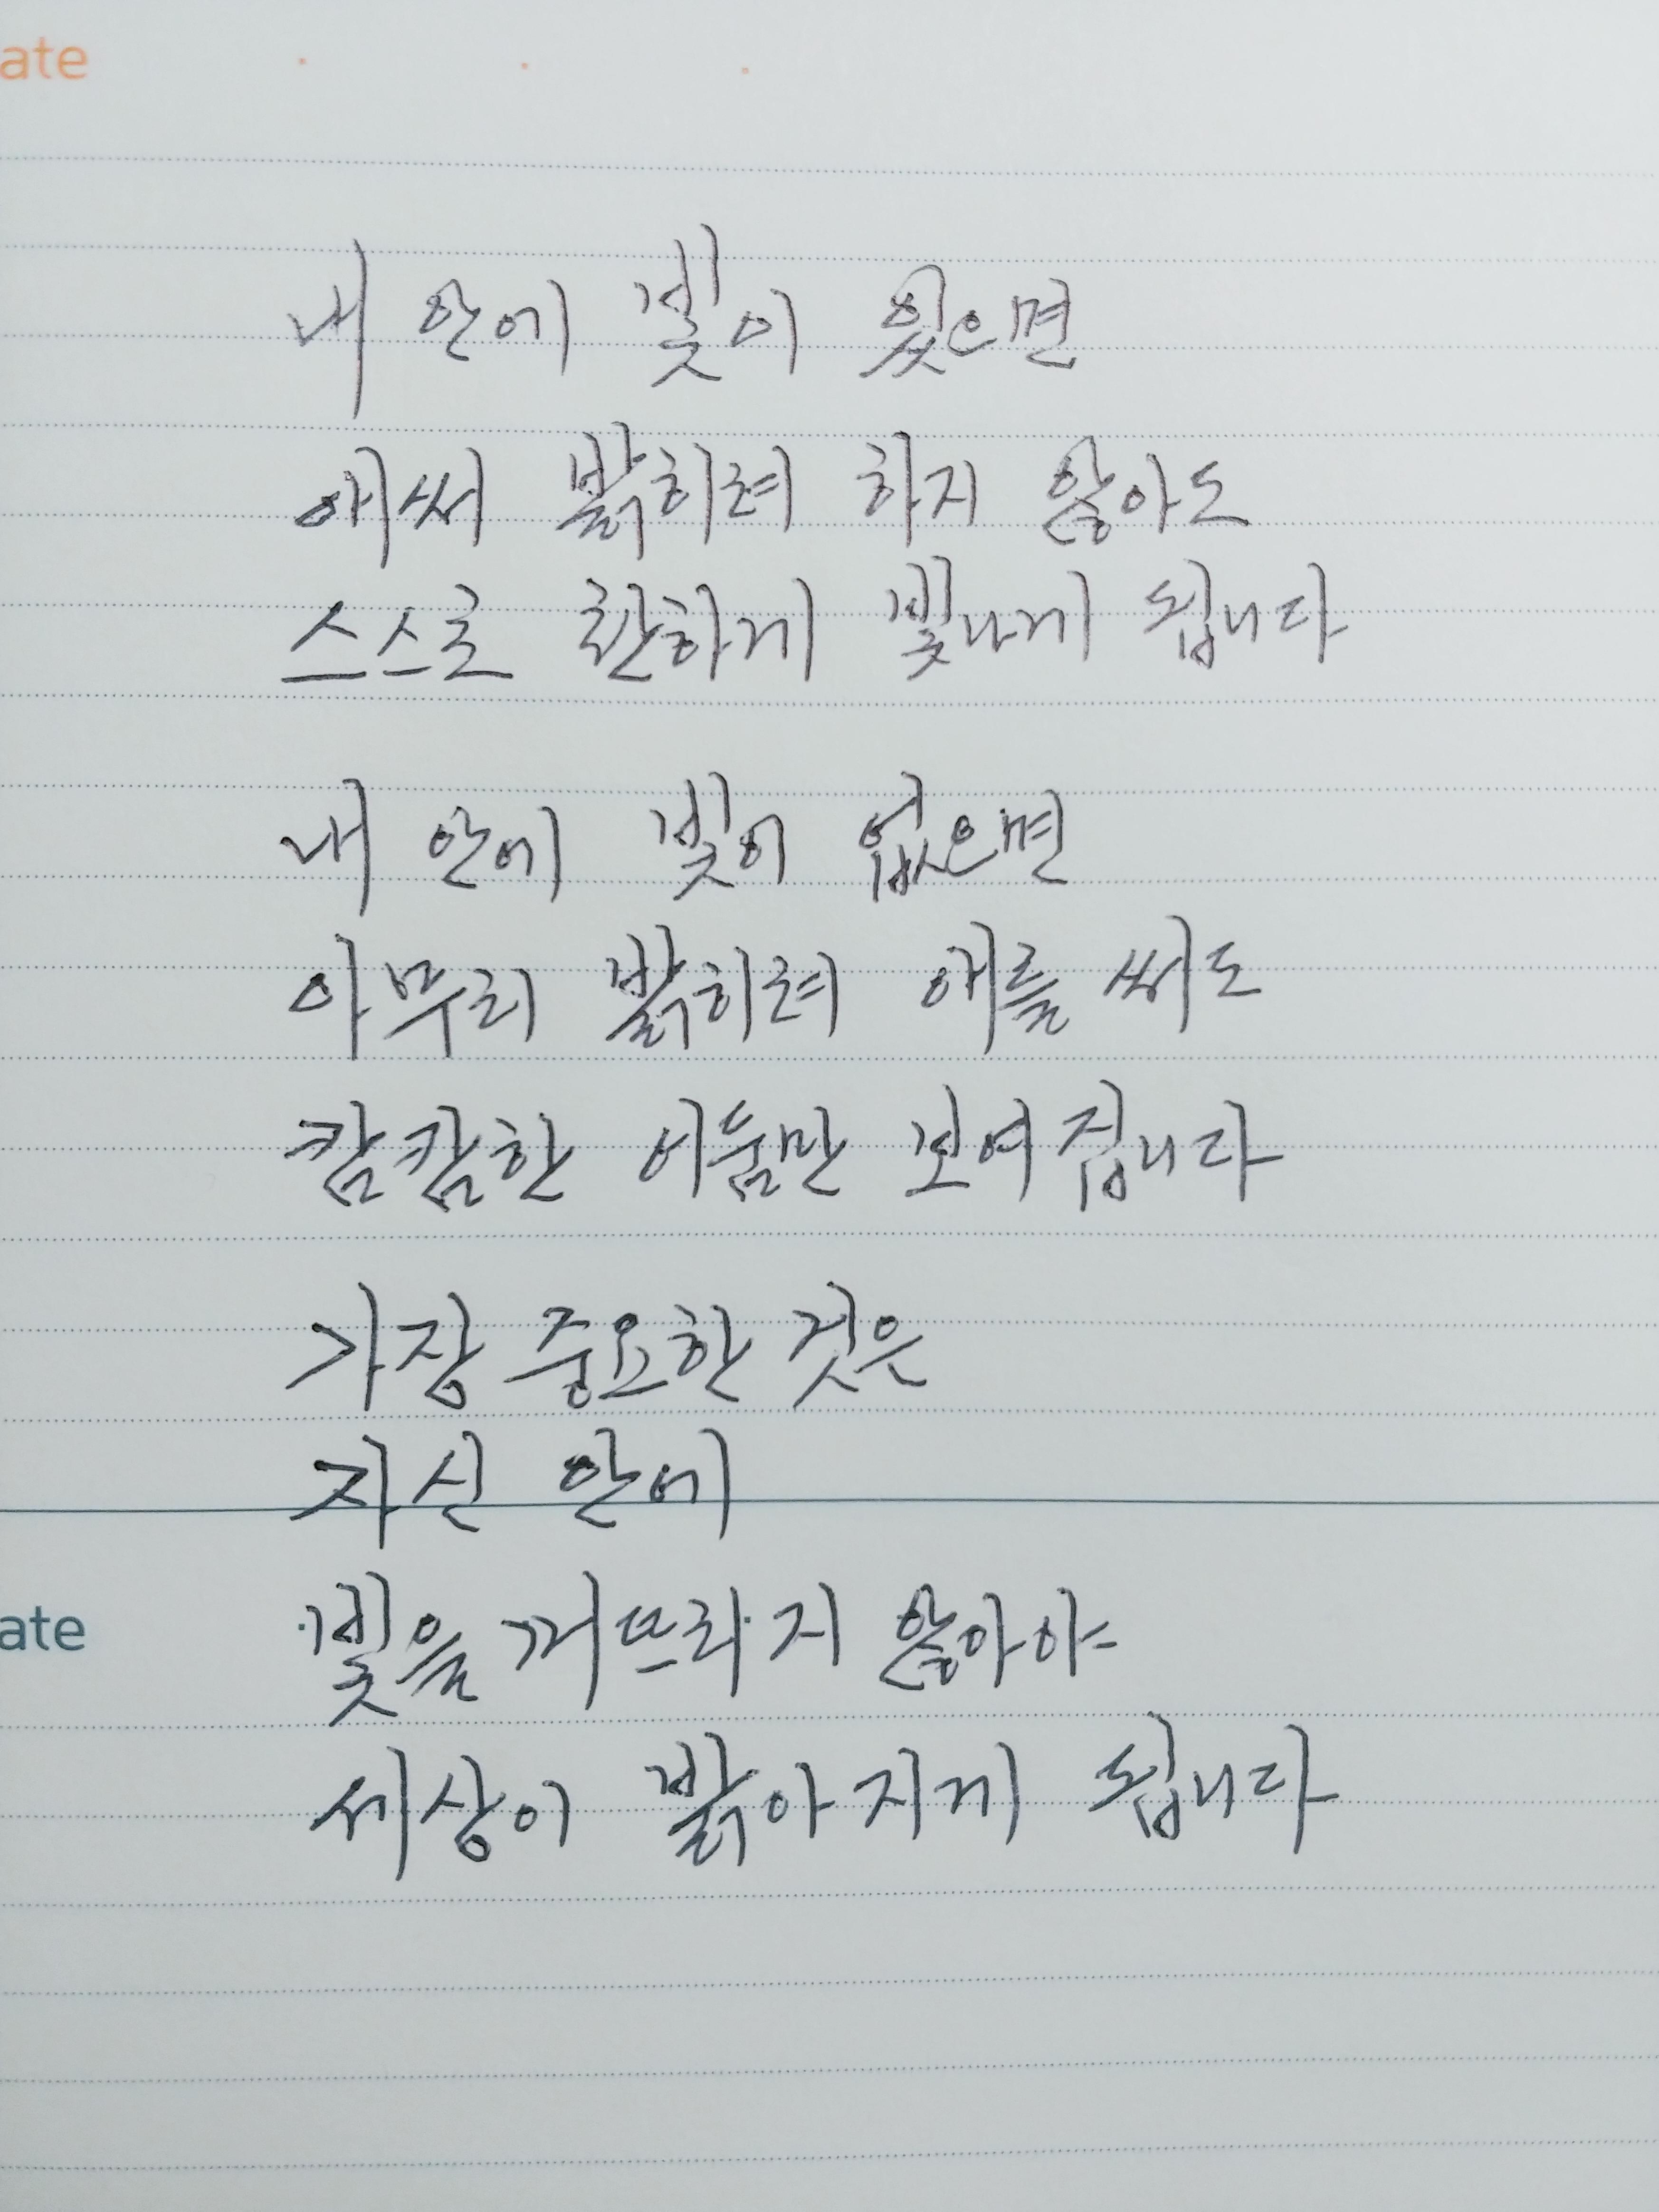 ate
내 안에 빛이 있으면
애써 밝히려 하지 않아도
스스로 환하게 빛나게 됩니다
내 안에 빛이 없으면
아무리 밝히려 애를 써도
캄캄한 어둠만 보여집니다
가장 중요한 것은
자신 안에
ate
빛을 꺼뜨리지 않아야
세상이 밝아지게 됩니다